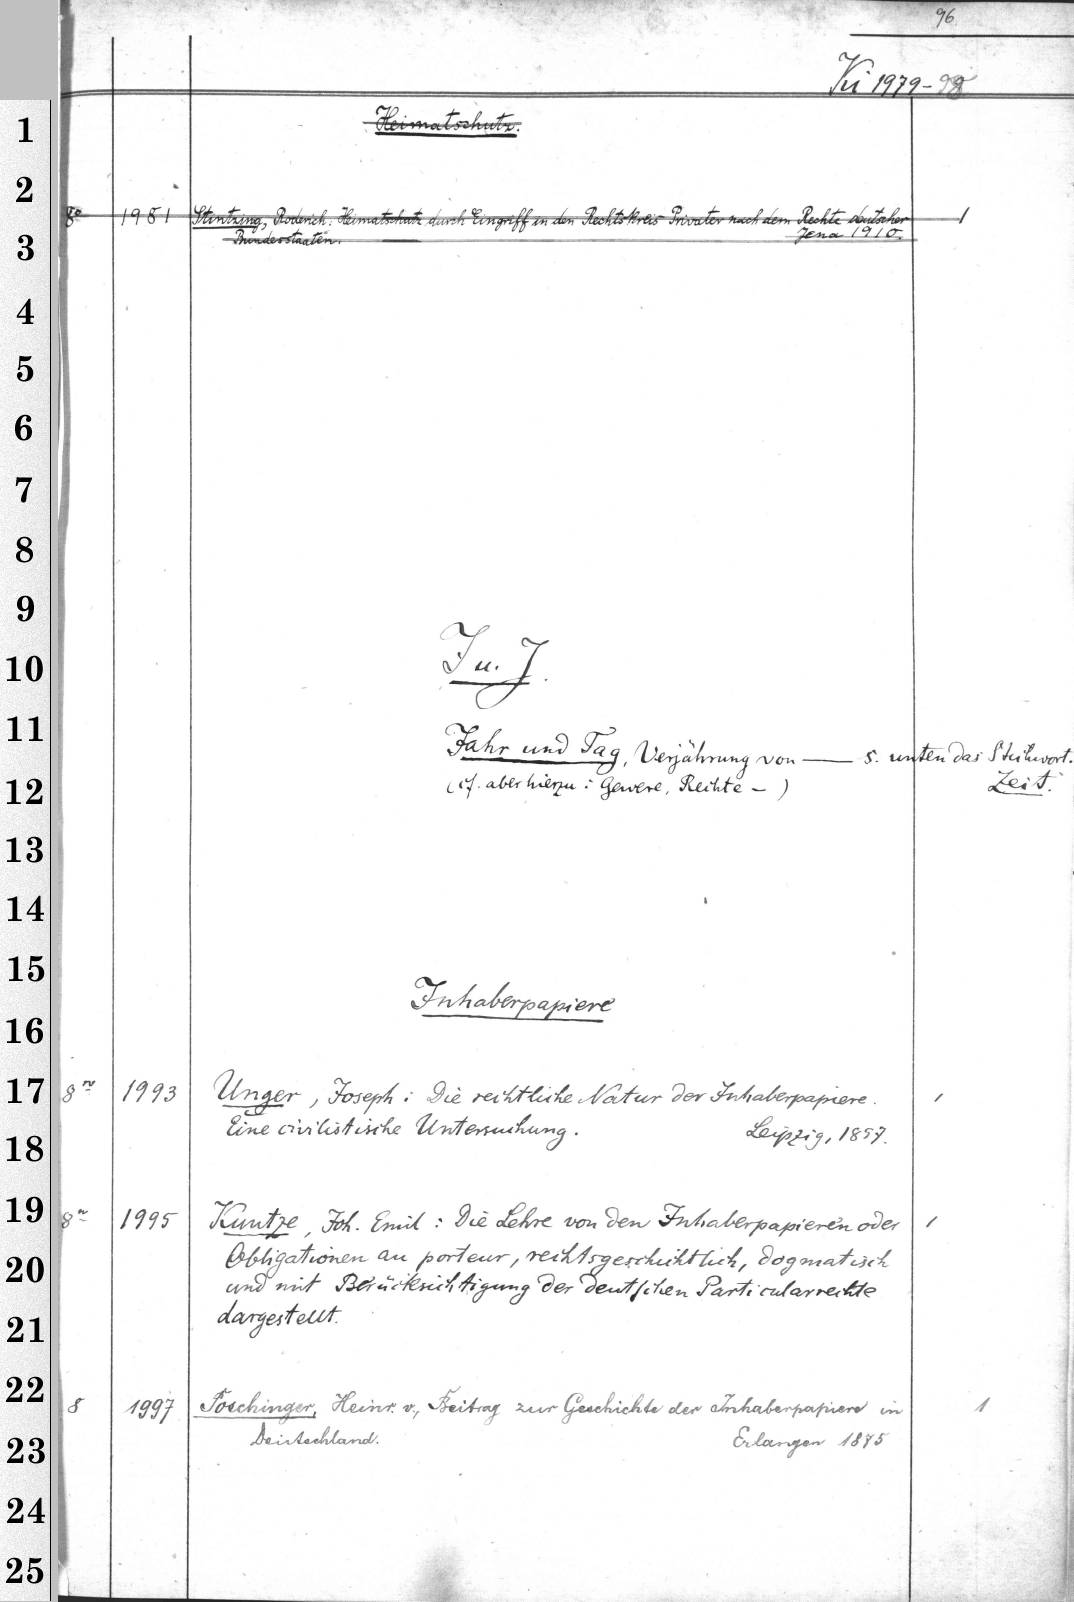 96
Ki 1979-98
Heimatschutz.
8º 1981 Stintzing, Roderich: Heimatschutz durch Eingriff in den Rechtskreis Privater nach dem Rechte deutscher 1
Bundesstaaten. Jena 1910.
I u. J.
Jahr und Tag, Verjährung von — s. unten das Stichwort.
(cf. aber hierzu: Gewere, Rechte – ) Zeit.
Inhaberpapiere
8º 1993 Unger, Joseph: Die rechtliche Natur der Inhaberpapiere. 1
Eine civilistische Untersuchung. Leipzig, 1857.
8º 1995 Kuntze, Joh. Emil: Die Lehre von den Inhaberpapieren oder 1
Obligationen au porteur, rechtsgeschichtlich, dogmatisch
und mit Berücksichtigung der deutschen Particularrechte
dargestellt.
8 1997 Poschinger, Heinr. v., Beitrag zur Geschichte der Inhaberpapiere in 1
Deutschland. Erlangen 1875
1
2
3
4
5
6
7
8
9
10
11
12
13
14
15
16
17
18
19
20
21
22
23
24
25